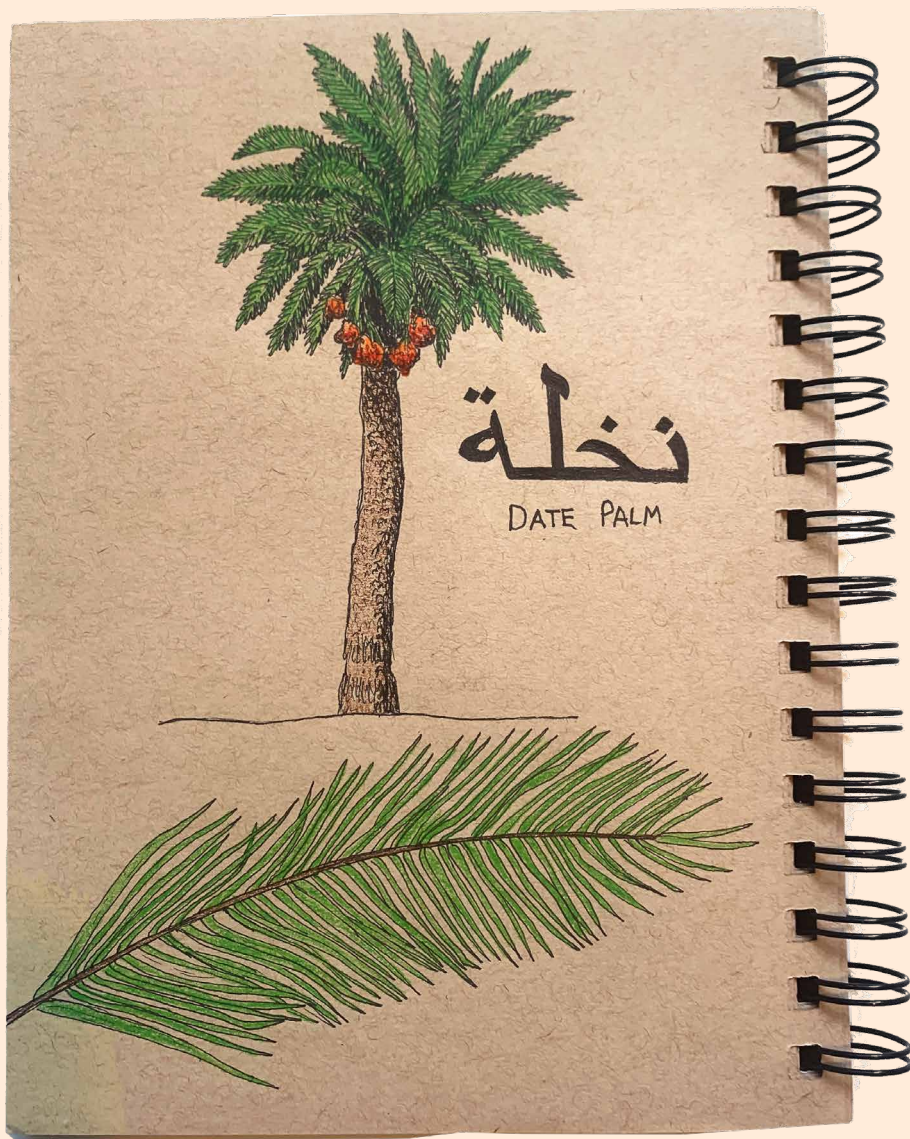 نخلة
DATE PALM